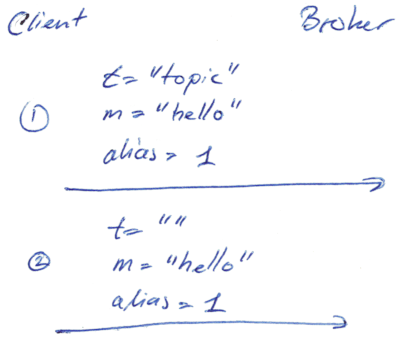 Client Broker
t= "topic"
① m = "hello"
alias = 1
t= ""
② m = "hello"
alias = 1